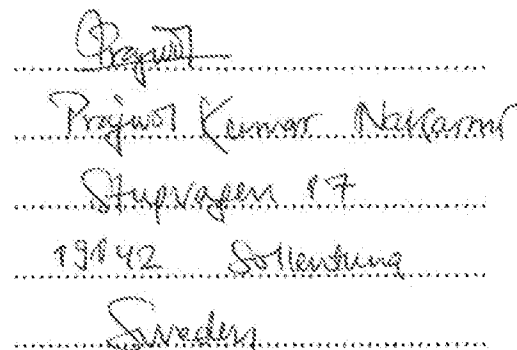 Prajwol
Prajwol Kumar Nakarmi
Stupvagen 17
19142 Sollentuna
Sweden